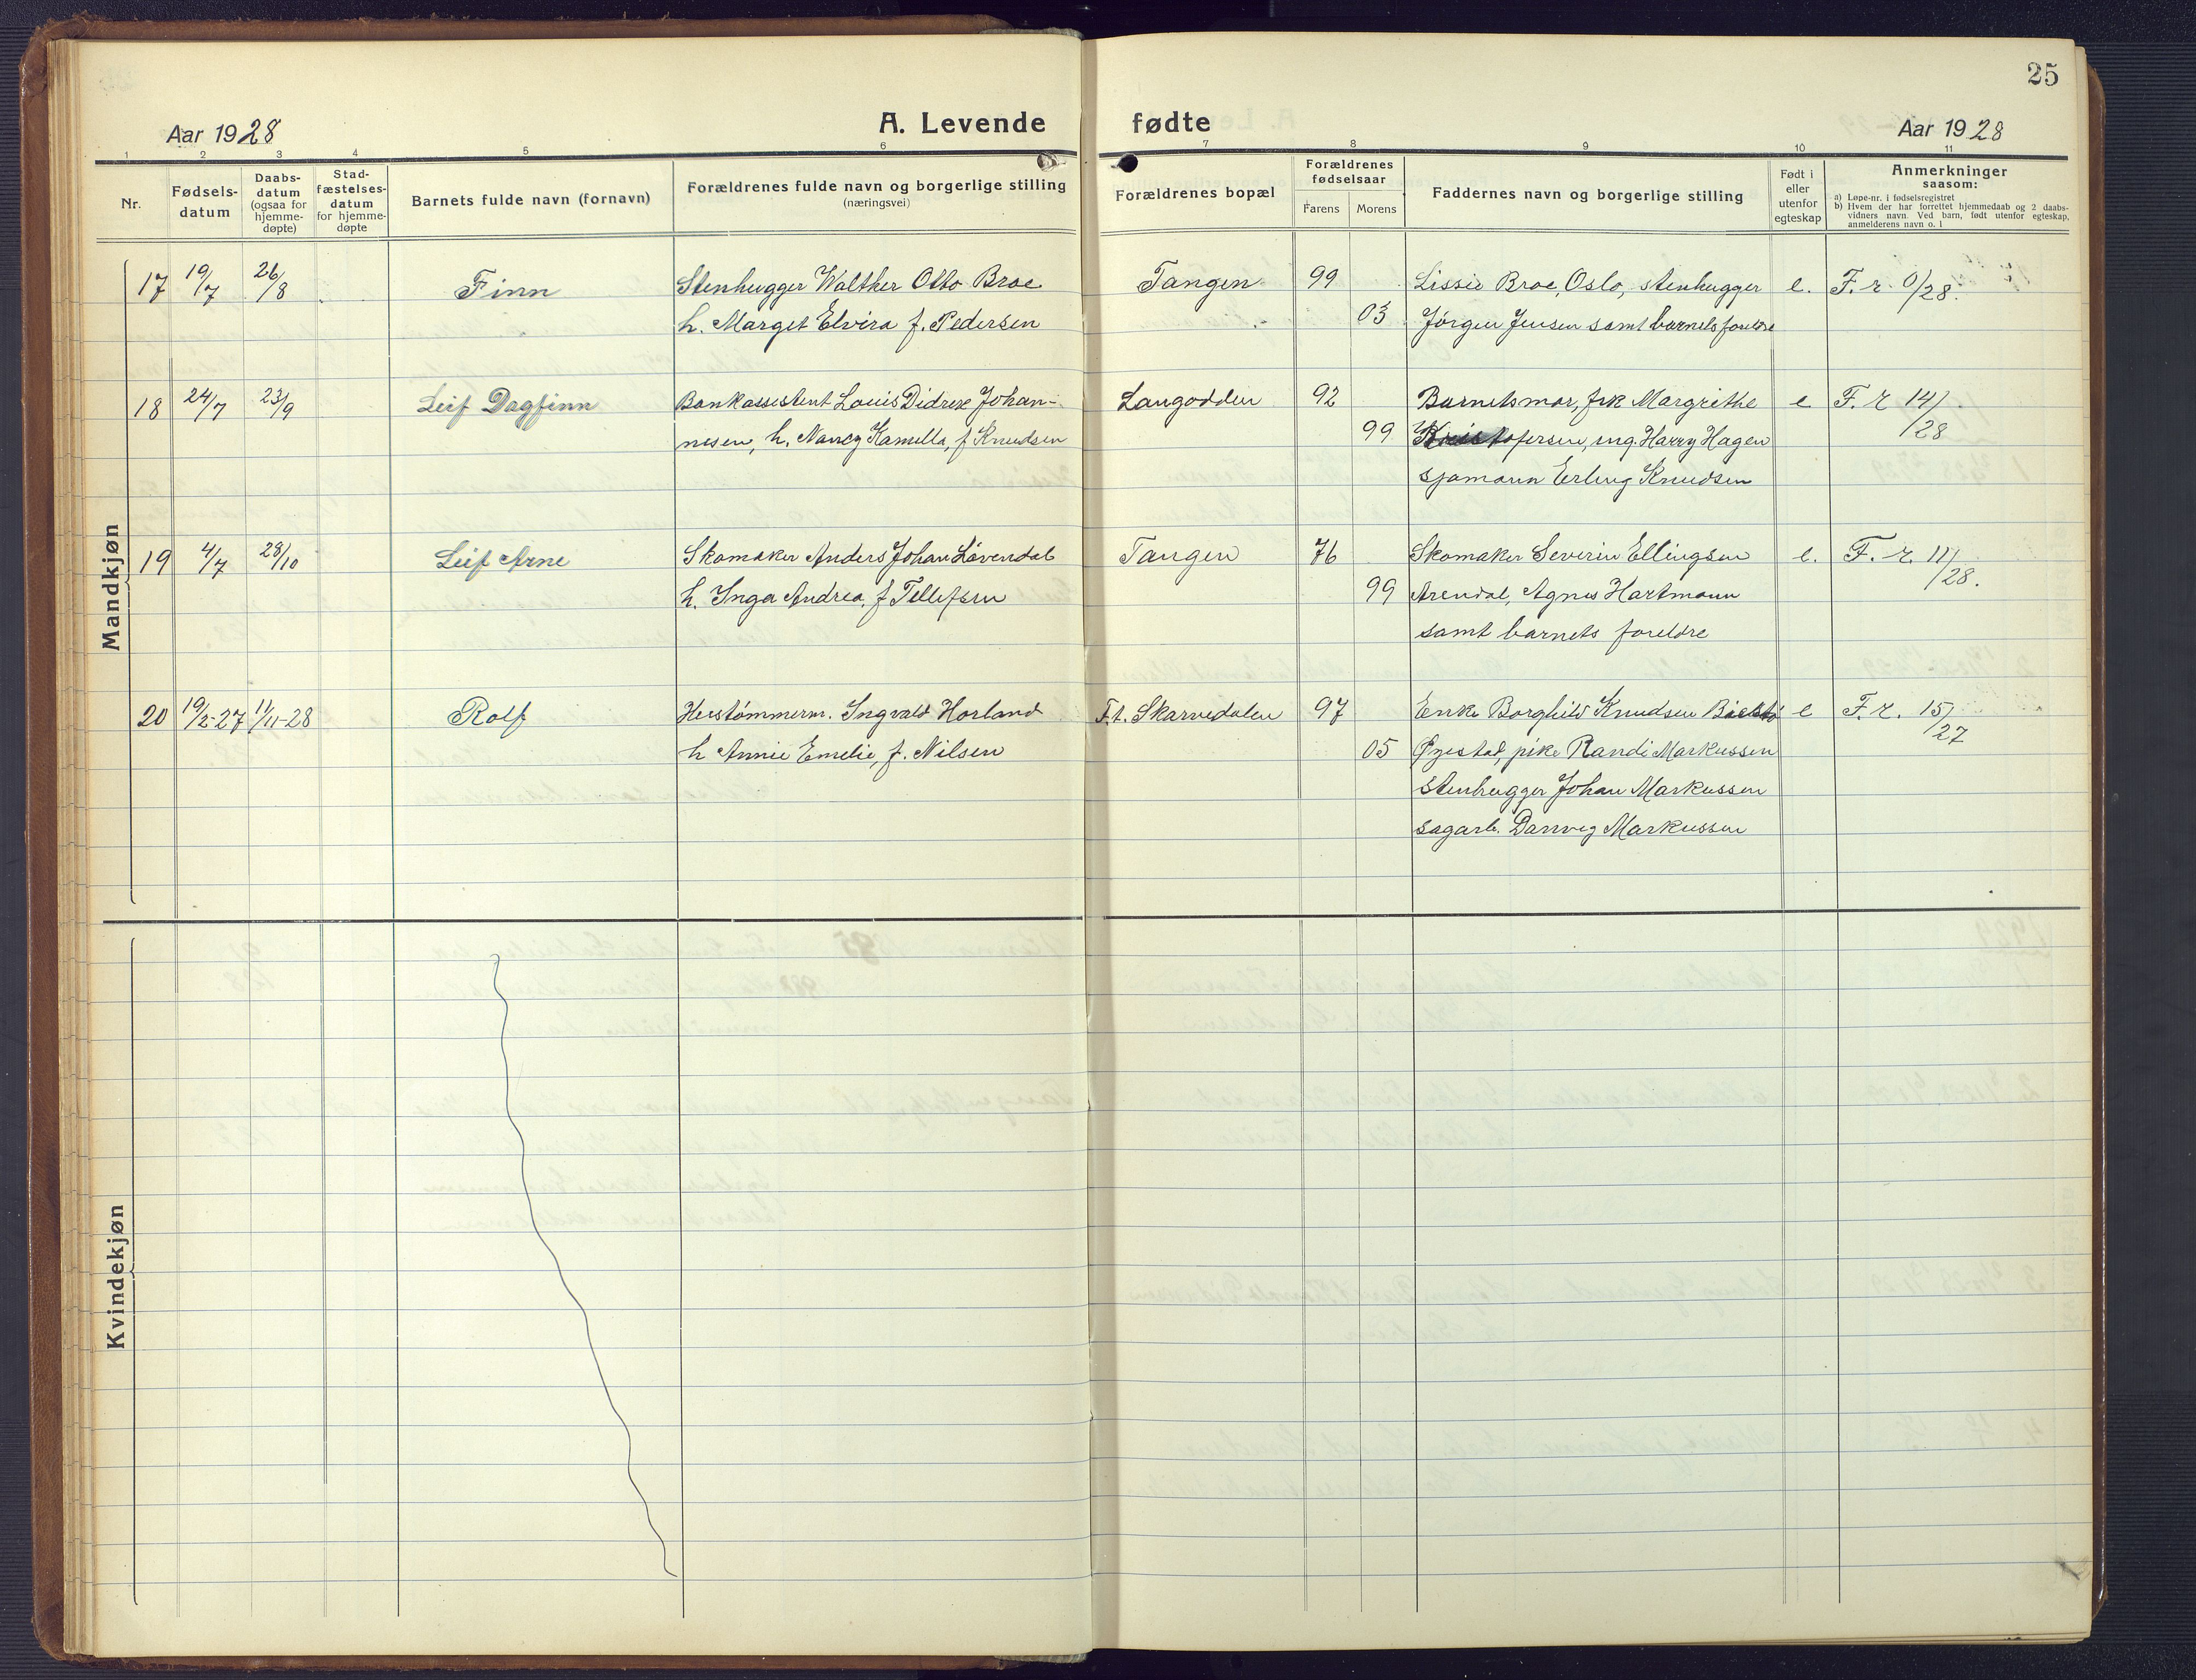 25
Aar 1928
A. Levende fødte
Aar 1928
1 2 3 4 5 6 7 8 9 10 11
Nr.
Fødsels-
datum
Daabs-
datum
(ogsaa for
hjemme-
døpte)
Stad-
fæstelses-
datum
for hjemme-
døpte
Barnets fulde navn (fornavn)
Forældrenes fulde navn og borgerlige stilling
(næringsvei)
Forældrenes bopæl
Forældrenes
fødselsaar
Farens Morens
Faddernes navn og borgerlige stilling
Født i
eller
utenfor
egteskap
Anmerkninger
saasom:
a) Løpe-nr. i fødselsregistret
b) Hvem der har forrettet hjemmedaab og 2 daabs-
vidners navn. Ved barn, født utenfor egteskap,
anmelderens navn o. l
Mandkjøn
17 19/7 26/8 Finn Stenhugger Walther Otto Broe Tangen 99 Lissie Broe, Oslo, stenhugger e. F. r. 0/28.
h. Marget Elvira f. Pedersen 03 Jørgen Jensen samt barnets foreldre
18 24/7 23/9 Leif Dagfinn Bankassistent Louis Didrik Johan- Langodden 92 Barnets mor, frk Margrethe e F. r 14/
nesen, h. Nancy Kamilla, f Knudsen 99 Kristofersen, ing. Harry Hagen /28
sjømann Erling Knudsen
19 4/7 28/10 Leif Arne Skomaker Anders Johan Løvendal Tangen 76 Skomaker Severin Ellingsen e. F. r. 11/
h. Inga Andrea, f Tellefsen 99 Arendal, Agnes Hartmann /28.
samt barnets foreldre
20 19/2-27 11/11-28 Rolf Hustømmerm. Ingvald Horland F.t. Skarvedalen 97 Enke Borghild Knudsen e F. r. 15/
h Annie Emelie, f. Nilsen 05 Øyestad, pike Randi Markussen /27
stenhugger Johan Markussen
sagarb. Danveg Markussen
Kvindekjøn